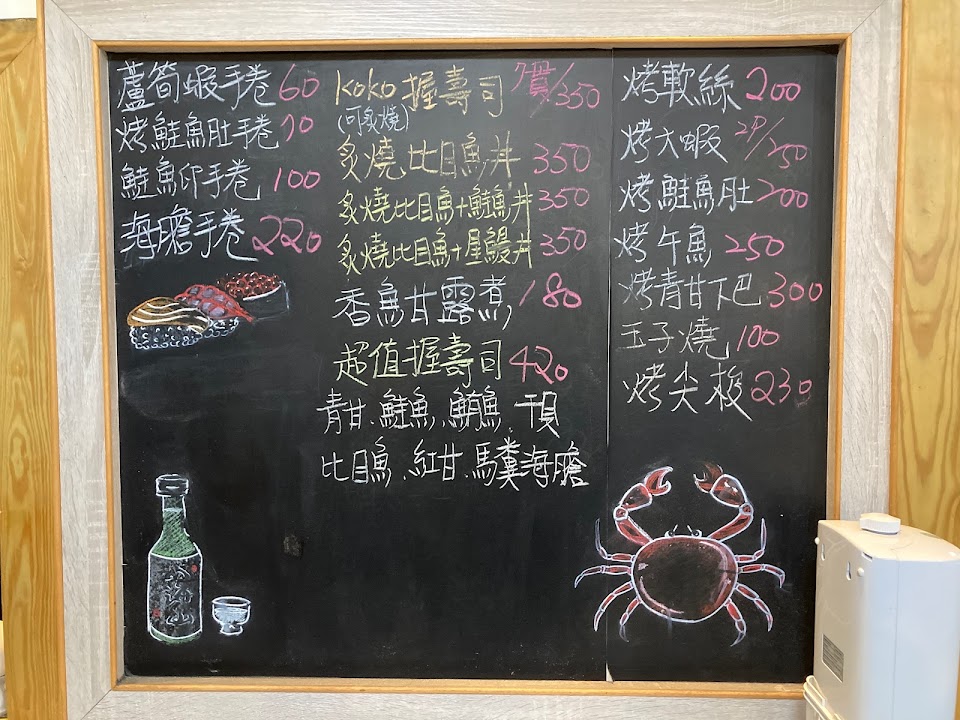 蘆筍蝦手卷 60
烤鮭魚肚手卷 70
鮭魚卵手卷 100
海膽手卷 220
koko 握壽司 7貫/350
(可炙燒)
炙燒比目魚丼 350
炙燒比目魚+鮭魚丼 350
炙燒比目魚+星鰻丼 350
香魚甘露煮 180
超值握壽司 420
青甘、鮭魚、鮪魚、干貝
比目魚、紅甘、馬糞海膽
烤軟絲 200
烤大蝦 2P/250
烤鮭魚肚 200
烤午魚 250
烤青甘下巴 300
玉子燒 100
烤尖梭 230